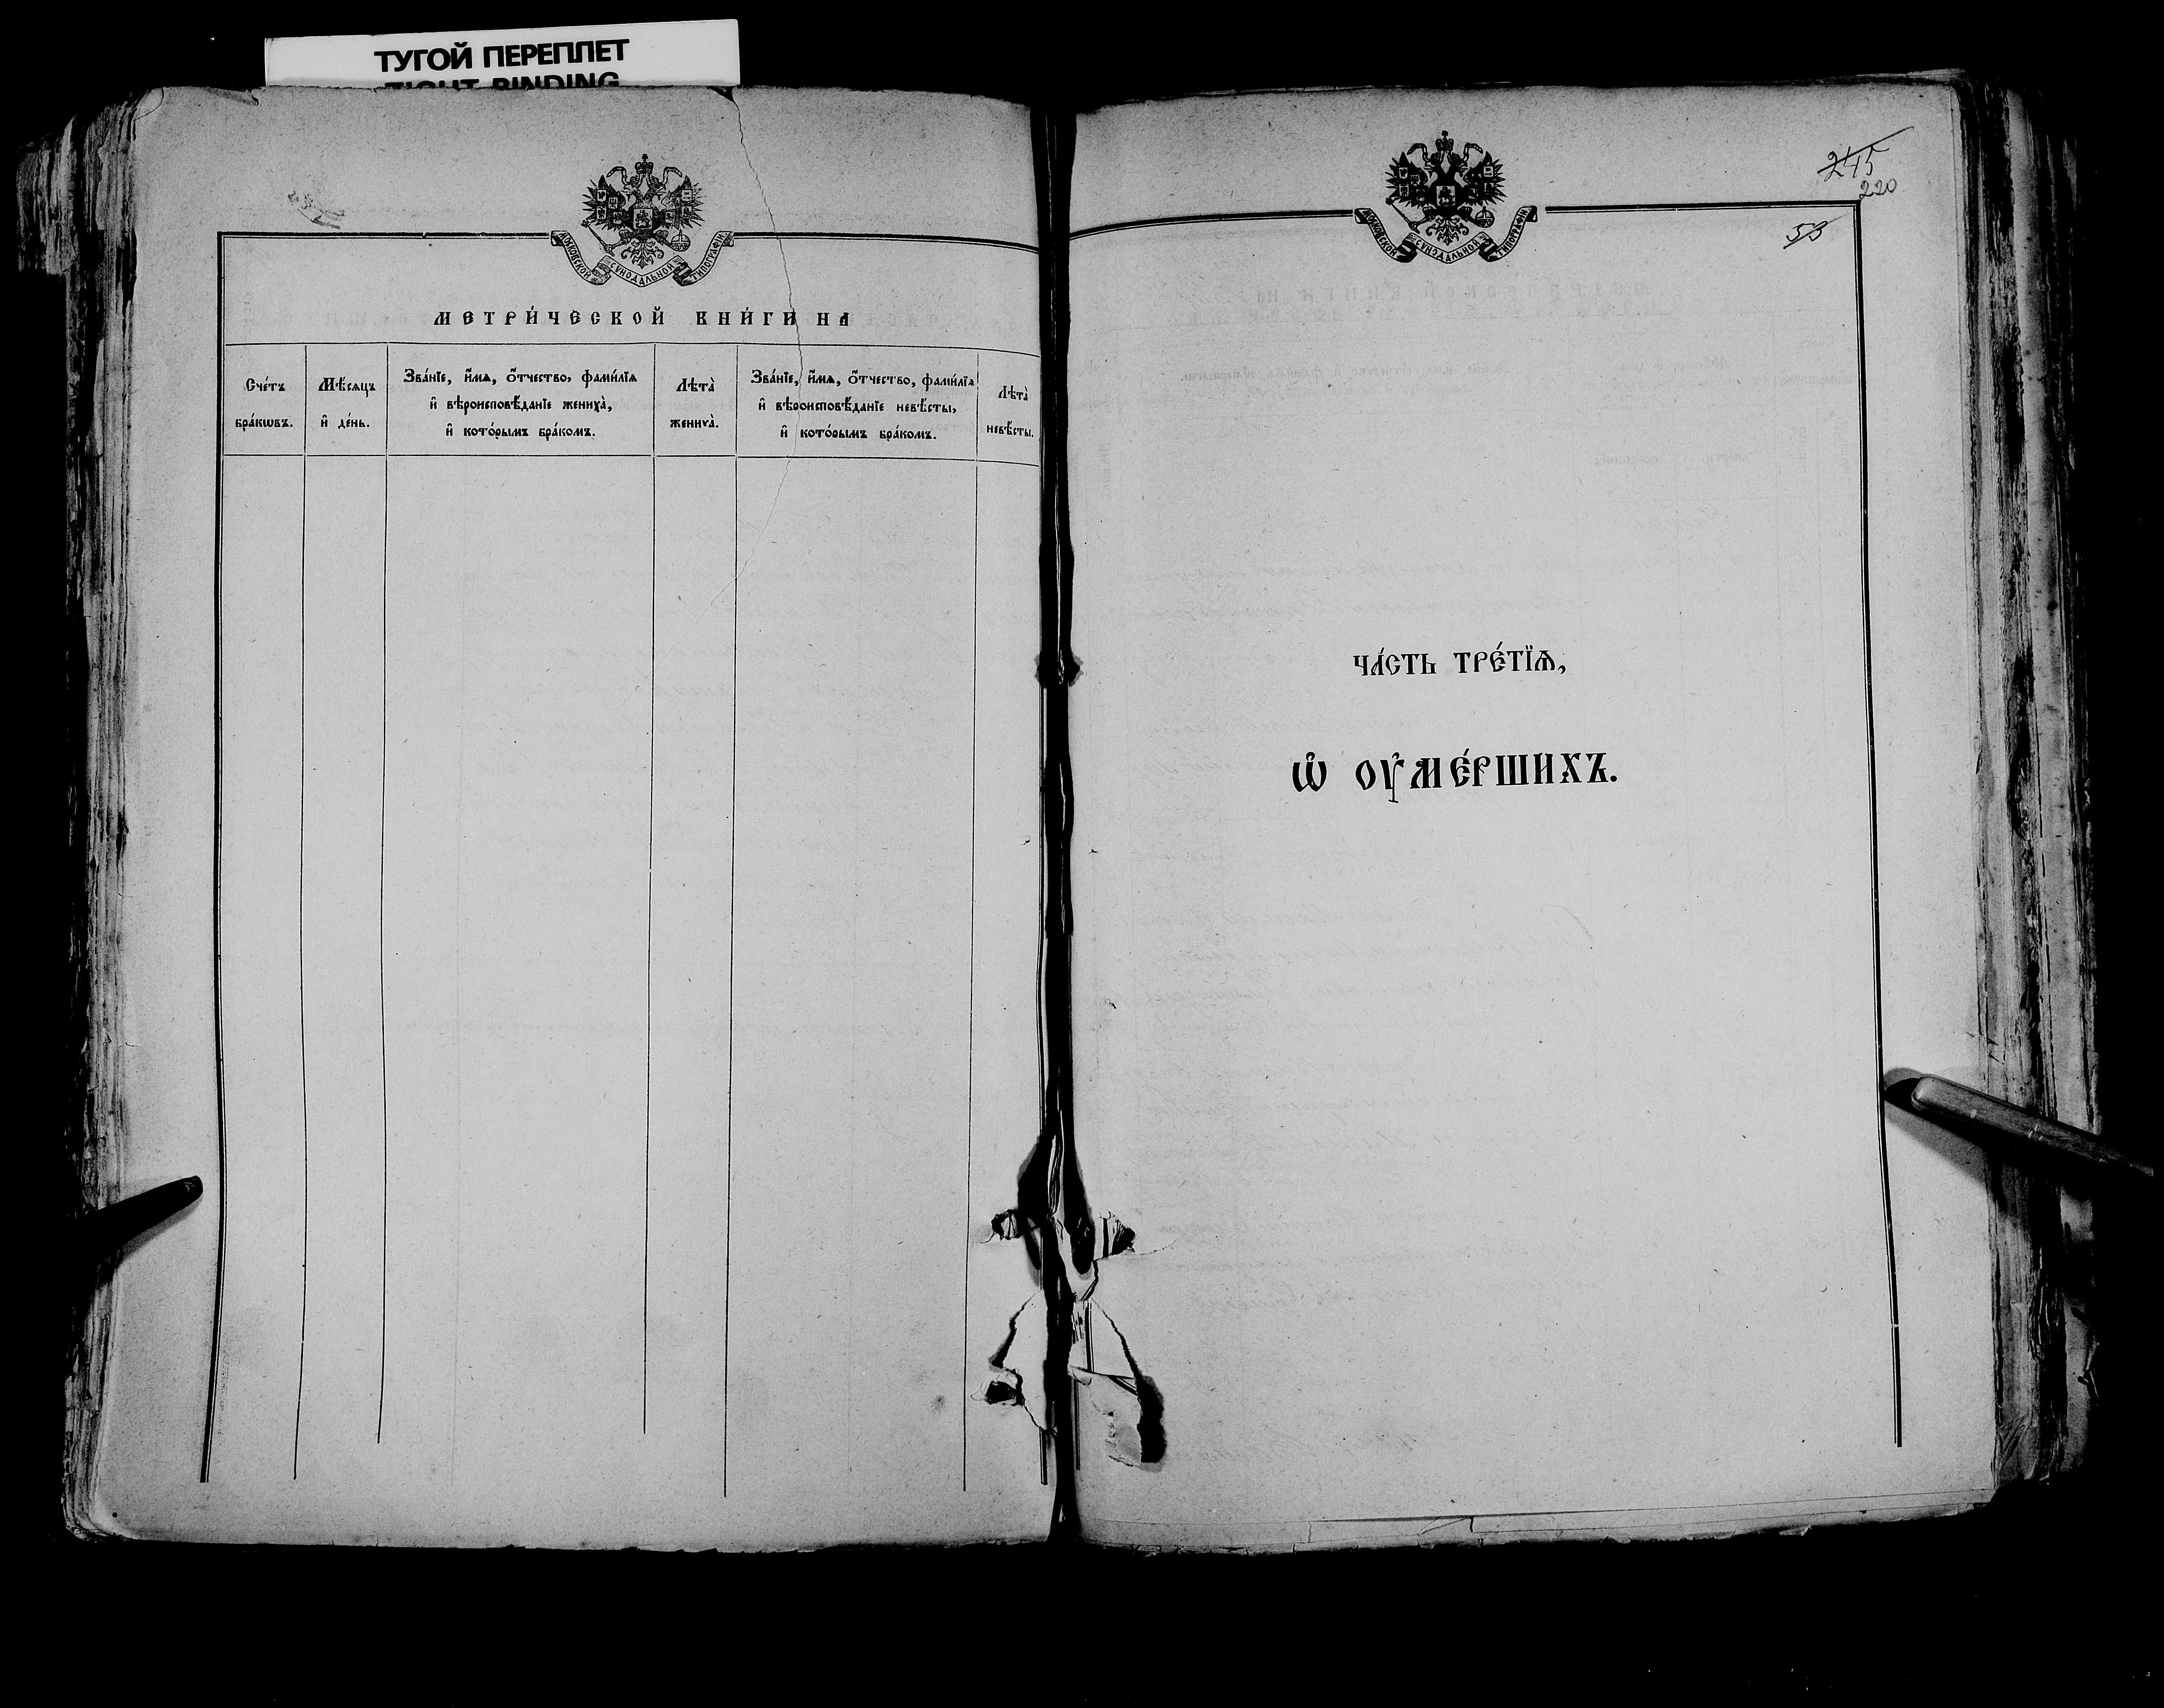 ТУГОЙ ПЕРЕПЛЕТ
TIGHT BINDING
МОСКОВСКОЙ СѴНОДАЛЬНОЙ ТИПОГРАФІИ
МЕТРИ́ЧЕСКОЙ КНИ́ГИ НА
Сче́тъ бра́кѡвъ.
Мѣ́сѧцъ и҆ де́нь.
Зва́нїе, и҆́мѧ, ѻ҆́тчество, фами́лїѧ
и҆ вѣроисповѣ́данїе жениха̀,
и҆ кото́рымъ бра́комъ.
Лѣта̀ жениха̀.
Зва́нїе, и҆́мѧ, ѻ҆́тчество, фами́лїѧ
и҆ вѣроисповѣ́данїе невѣ́сты,
и҆ кото́рымъ бра́комъ.
Лѣта̀ невѣ́сты.
245
220
53
МОСКОВСКОЙ СѴНОДАЛЬНОЙ ТИПОГРАФІИ
ЧА́СТЬ ТРЕ́ТЇѦ,
Ѡ҆ ОУ҆МЕ́РШИХЪ.